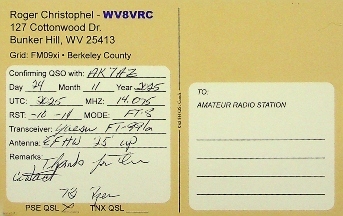 Roger Christophel - WV8VRC
127 Cottonwood Dr.
Bunker Hill, WV 25413
Grid: FM09xi • Berkeley County
Confirming QSO with: AK7AZ
Day 24 Month 11 Year 2025
UTC: 2025 MHZ: 14.075
RST: -10 -14 MODE: FT-8
Transceiver: Yaesu FT-991a
Antenna: EFHW 25' up
Remarks: Thanks for the
Contact
73 Roger
PSE QSL TNX QSL
TO:
AMATEUR RADIO STATION